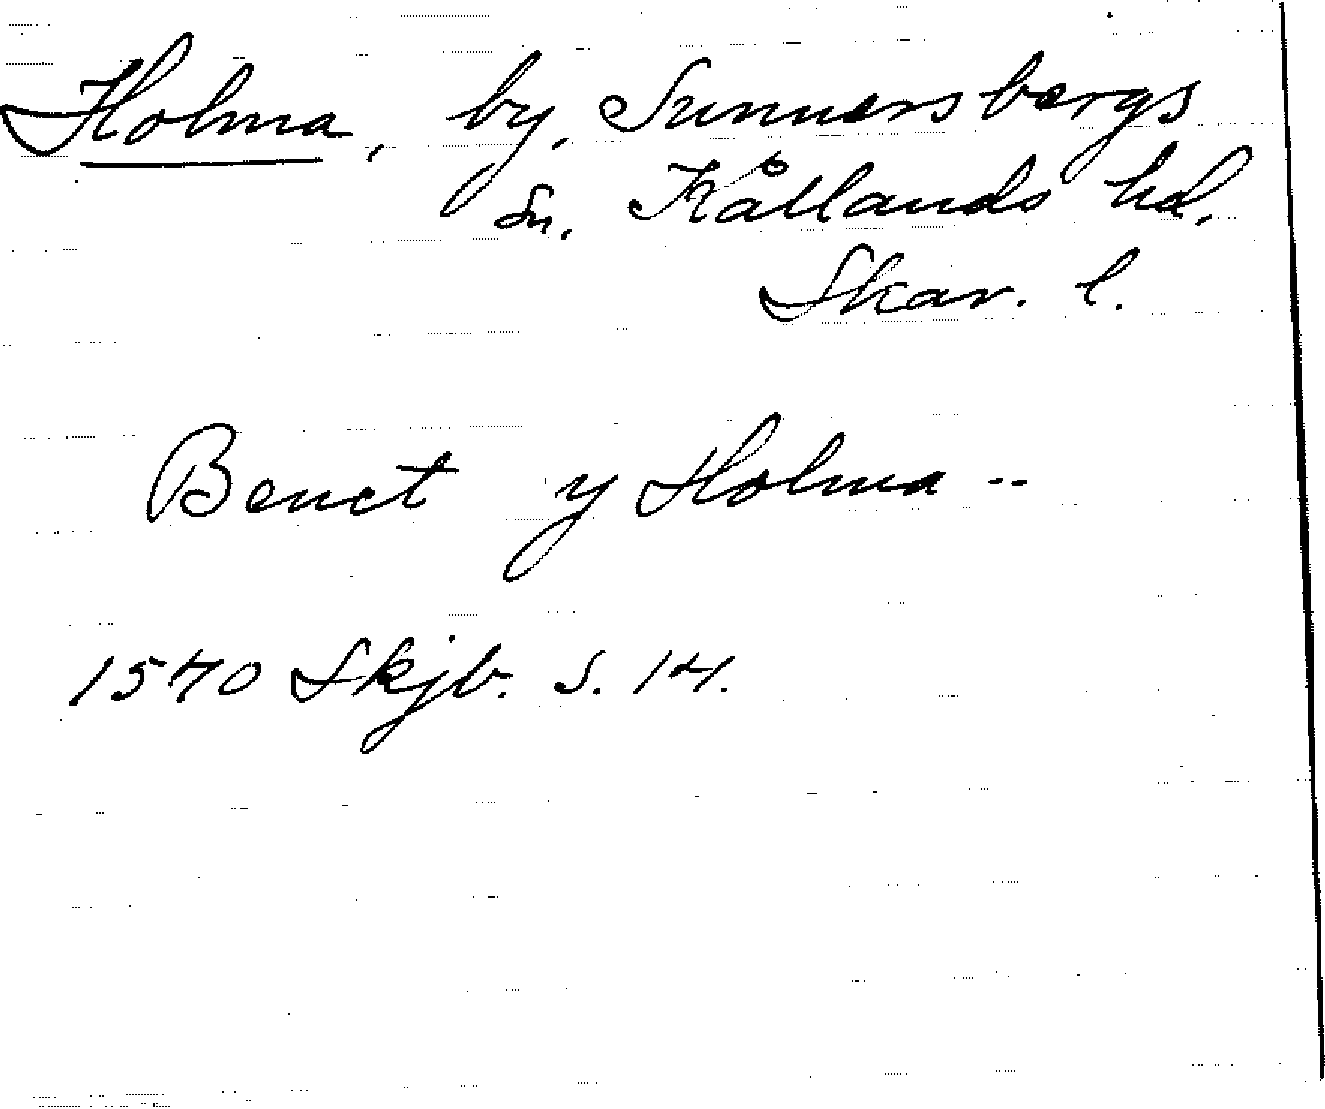 Holma, by, Sunnersbergs
sn. Kållands hd.
Skar. l.
Benct y Holma --
1570 Skjb. s. 14.